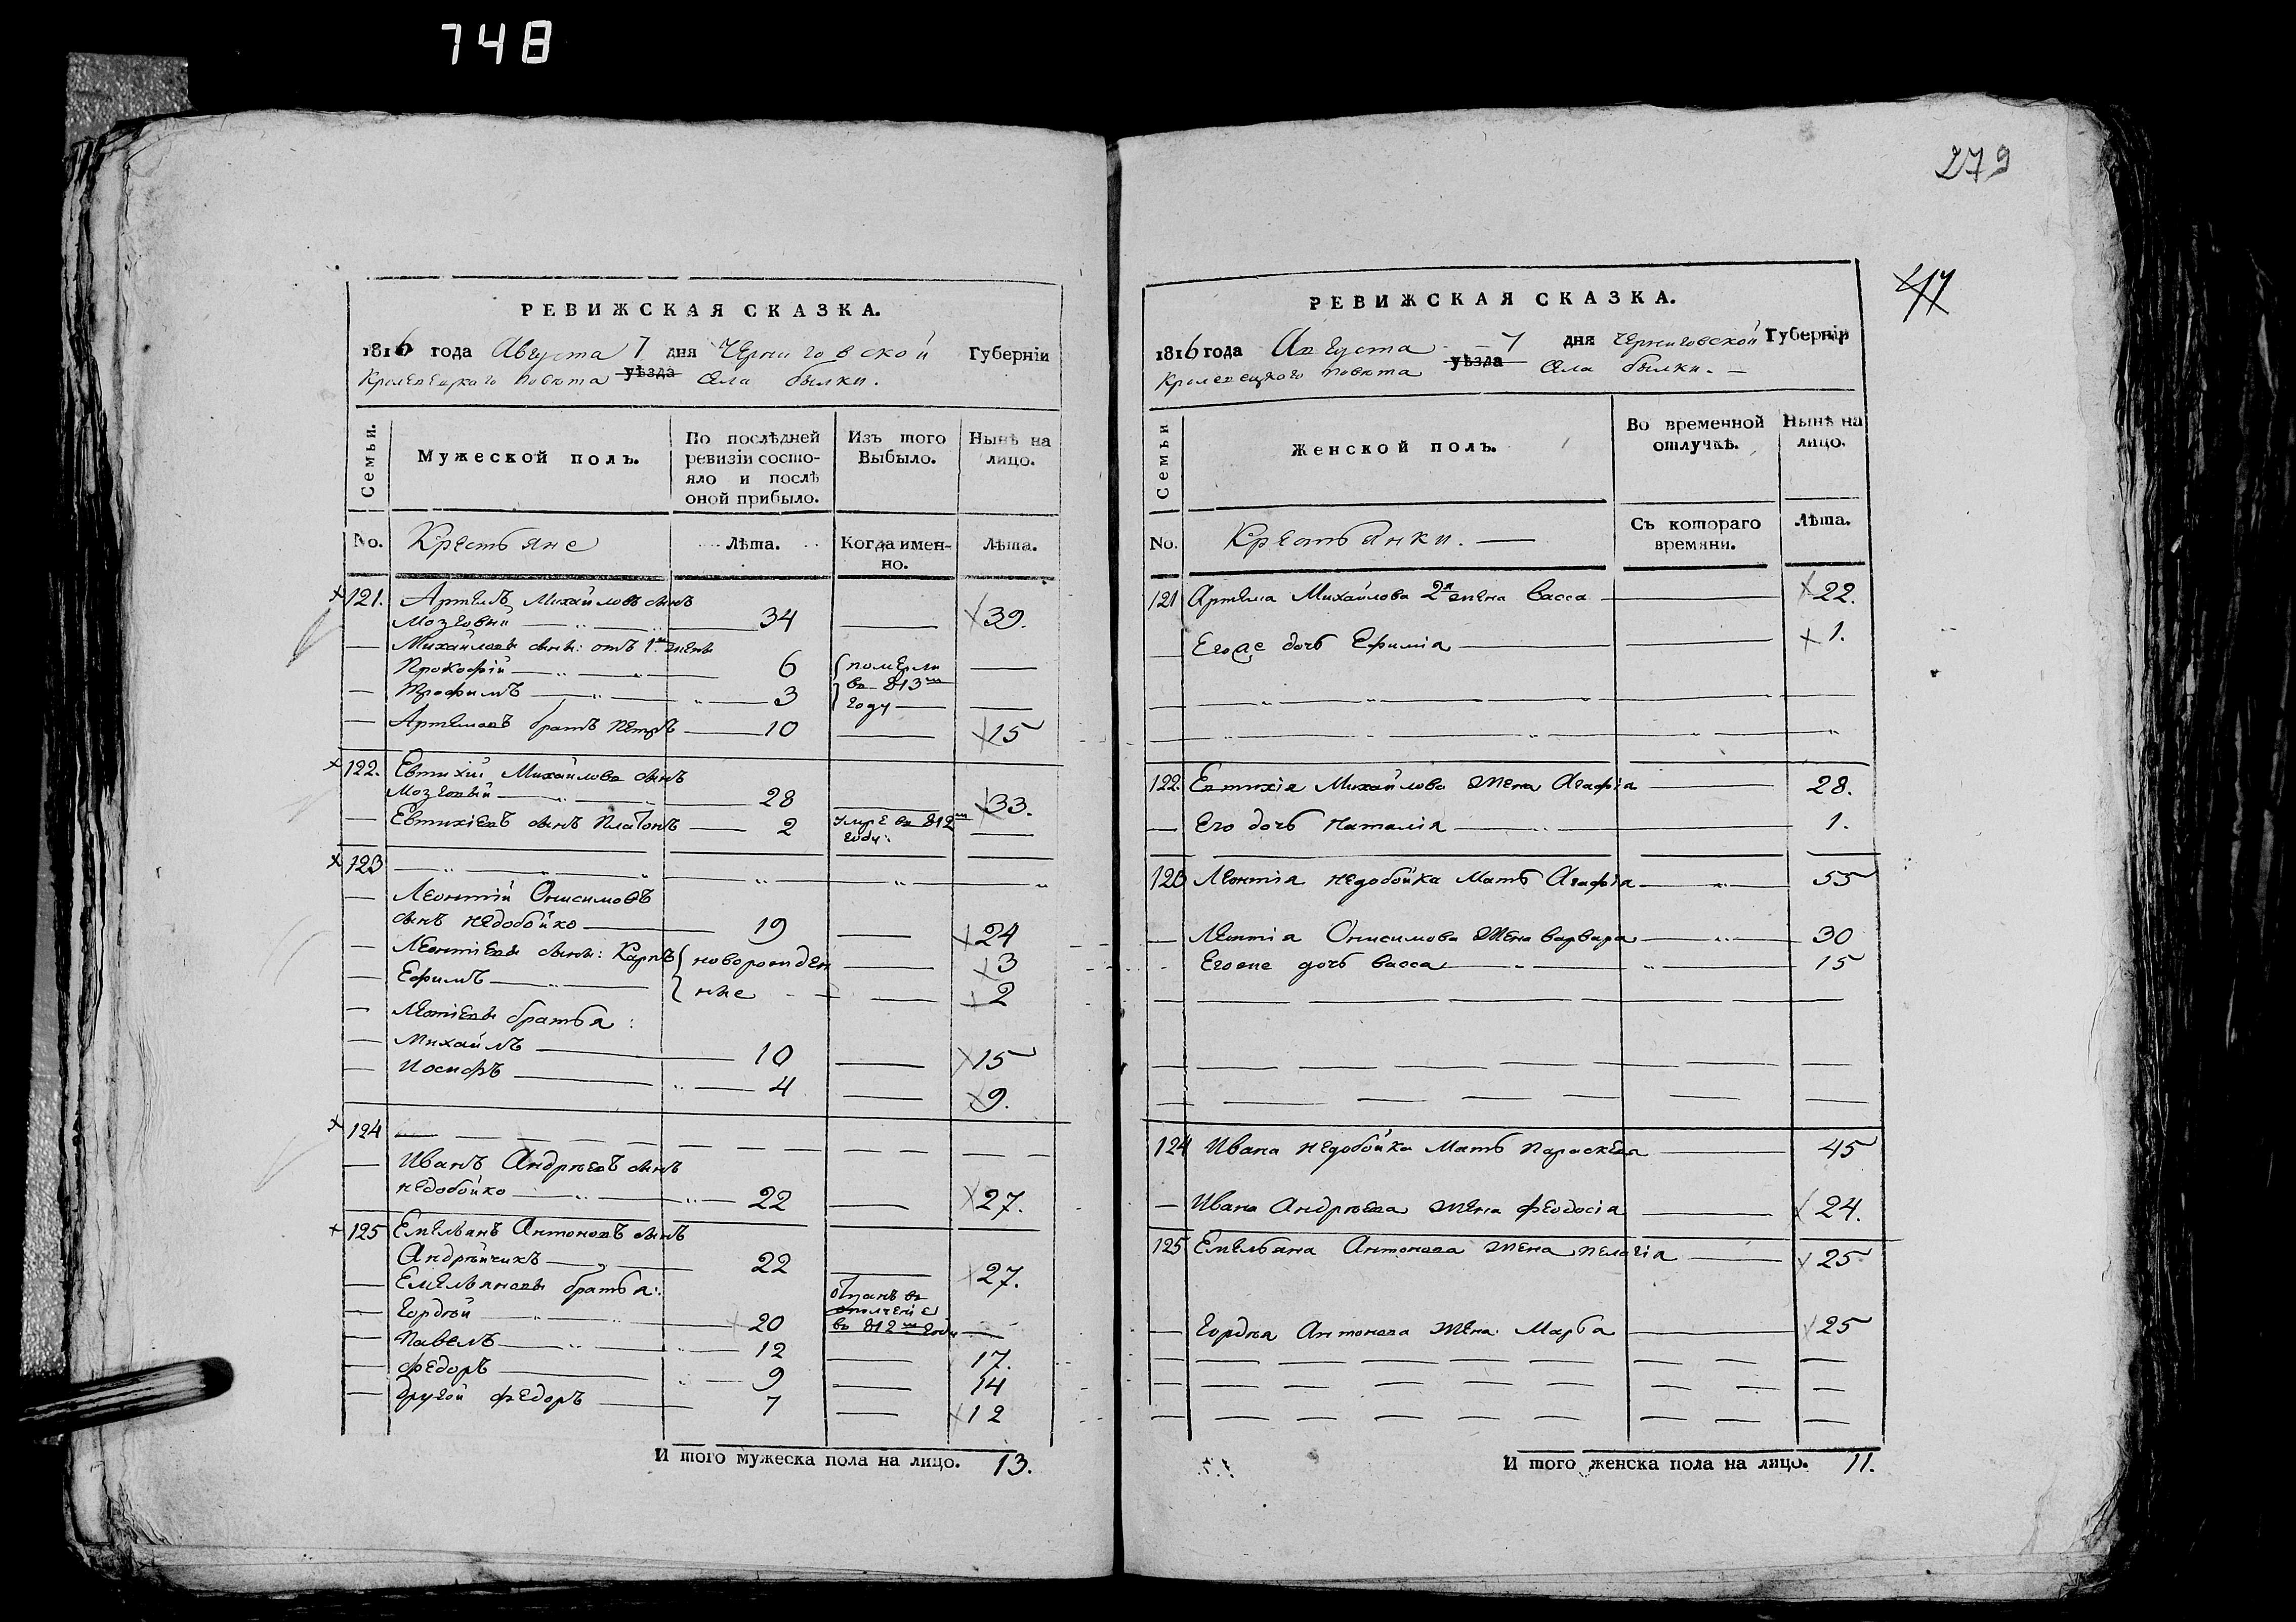 748
РЕВИЖСКАЯ СКАЗКА.
1816 года Августа 7 дня Черниговской Губерніи
Кролевецкого повѣта уѣзда Села былки.
Семьи.
Мужеской полъ.
По послѣдней ревизіи состо-
яло и послѣ
оной прибыло.
Изъ того
Выбыло.
Нынѣ на
лицо.
No. Крестьяне Лѣта. Когда имен-
но. Лѣта.
121. Артемъ Михайловъ сынъ
Мозговый 34 39.
Михайловы сыны: отъ 1й жены
Прокофій 6 померли
Трофимъ 3 въ 813м
году
Артемовъ братъ Петръ 10 15
122. Евтихій Михайловъ сынъ
Мозговый 28 33.
Евтихіевъ сынъ Платонъ 2 умре въ 812м
году.
123
Леонтій Онисимовъ
сынъ недобойко 19 24
Леонтіевы сыны: Карпъ новорожден 3
Ефимъ ные 2
Леонтіевы братья:
Михайлъ 10 15
Иосифъ 4 9.
124
Иванъ Андрѣевъ сынъ
недобойко 22 27.
125 Емельянъ Антоновъ сынъ
Андрѣйчикъ 22 27.
Емельяновы братья: отданъ въ
Гордѣй 20 ополченіе
въ 812м году
Павелъ 12 17.
Федоръ 9 14
другой Федоръ 7 12
И того мужеска пола на лицо. 13.
279
РЕВИЖСКАЯ СКАЗКА.
1816 года Августа 7 дня Черниговской Губерніи
Кролевецкого повѣта уѣзда Села былки.
Семьи
Женской полъ.
Во временной
отлучкѣ.
Нынѣ на
лицо.
No. Крестьянки. Съ котораго
времяни. Лѣта.
121 Артема Михайлова 2я жена Васса 22.
Егоже дочь Ефимія 1.
122. Евтихія Михайлова жена Агафія 28.
Его дочь Наталія 1.
123 Леонтія недобойка мать Агафія 55
Леонтія Онисимова жена Варвара 30
Егоже дочь Васса 15
124 Ивана недобойка мать Параскевя 45
Ивана Андрѣева жена Феодосія 24.
125 Емельяна Антонова жена Пелагія 25
Гордѣя Антонова жена Марфа 25
И того женска пола на лицо. 11.